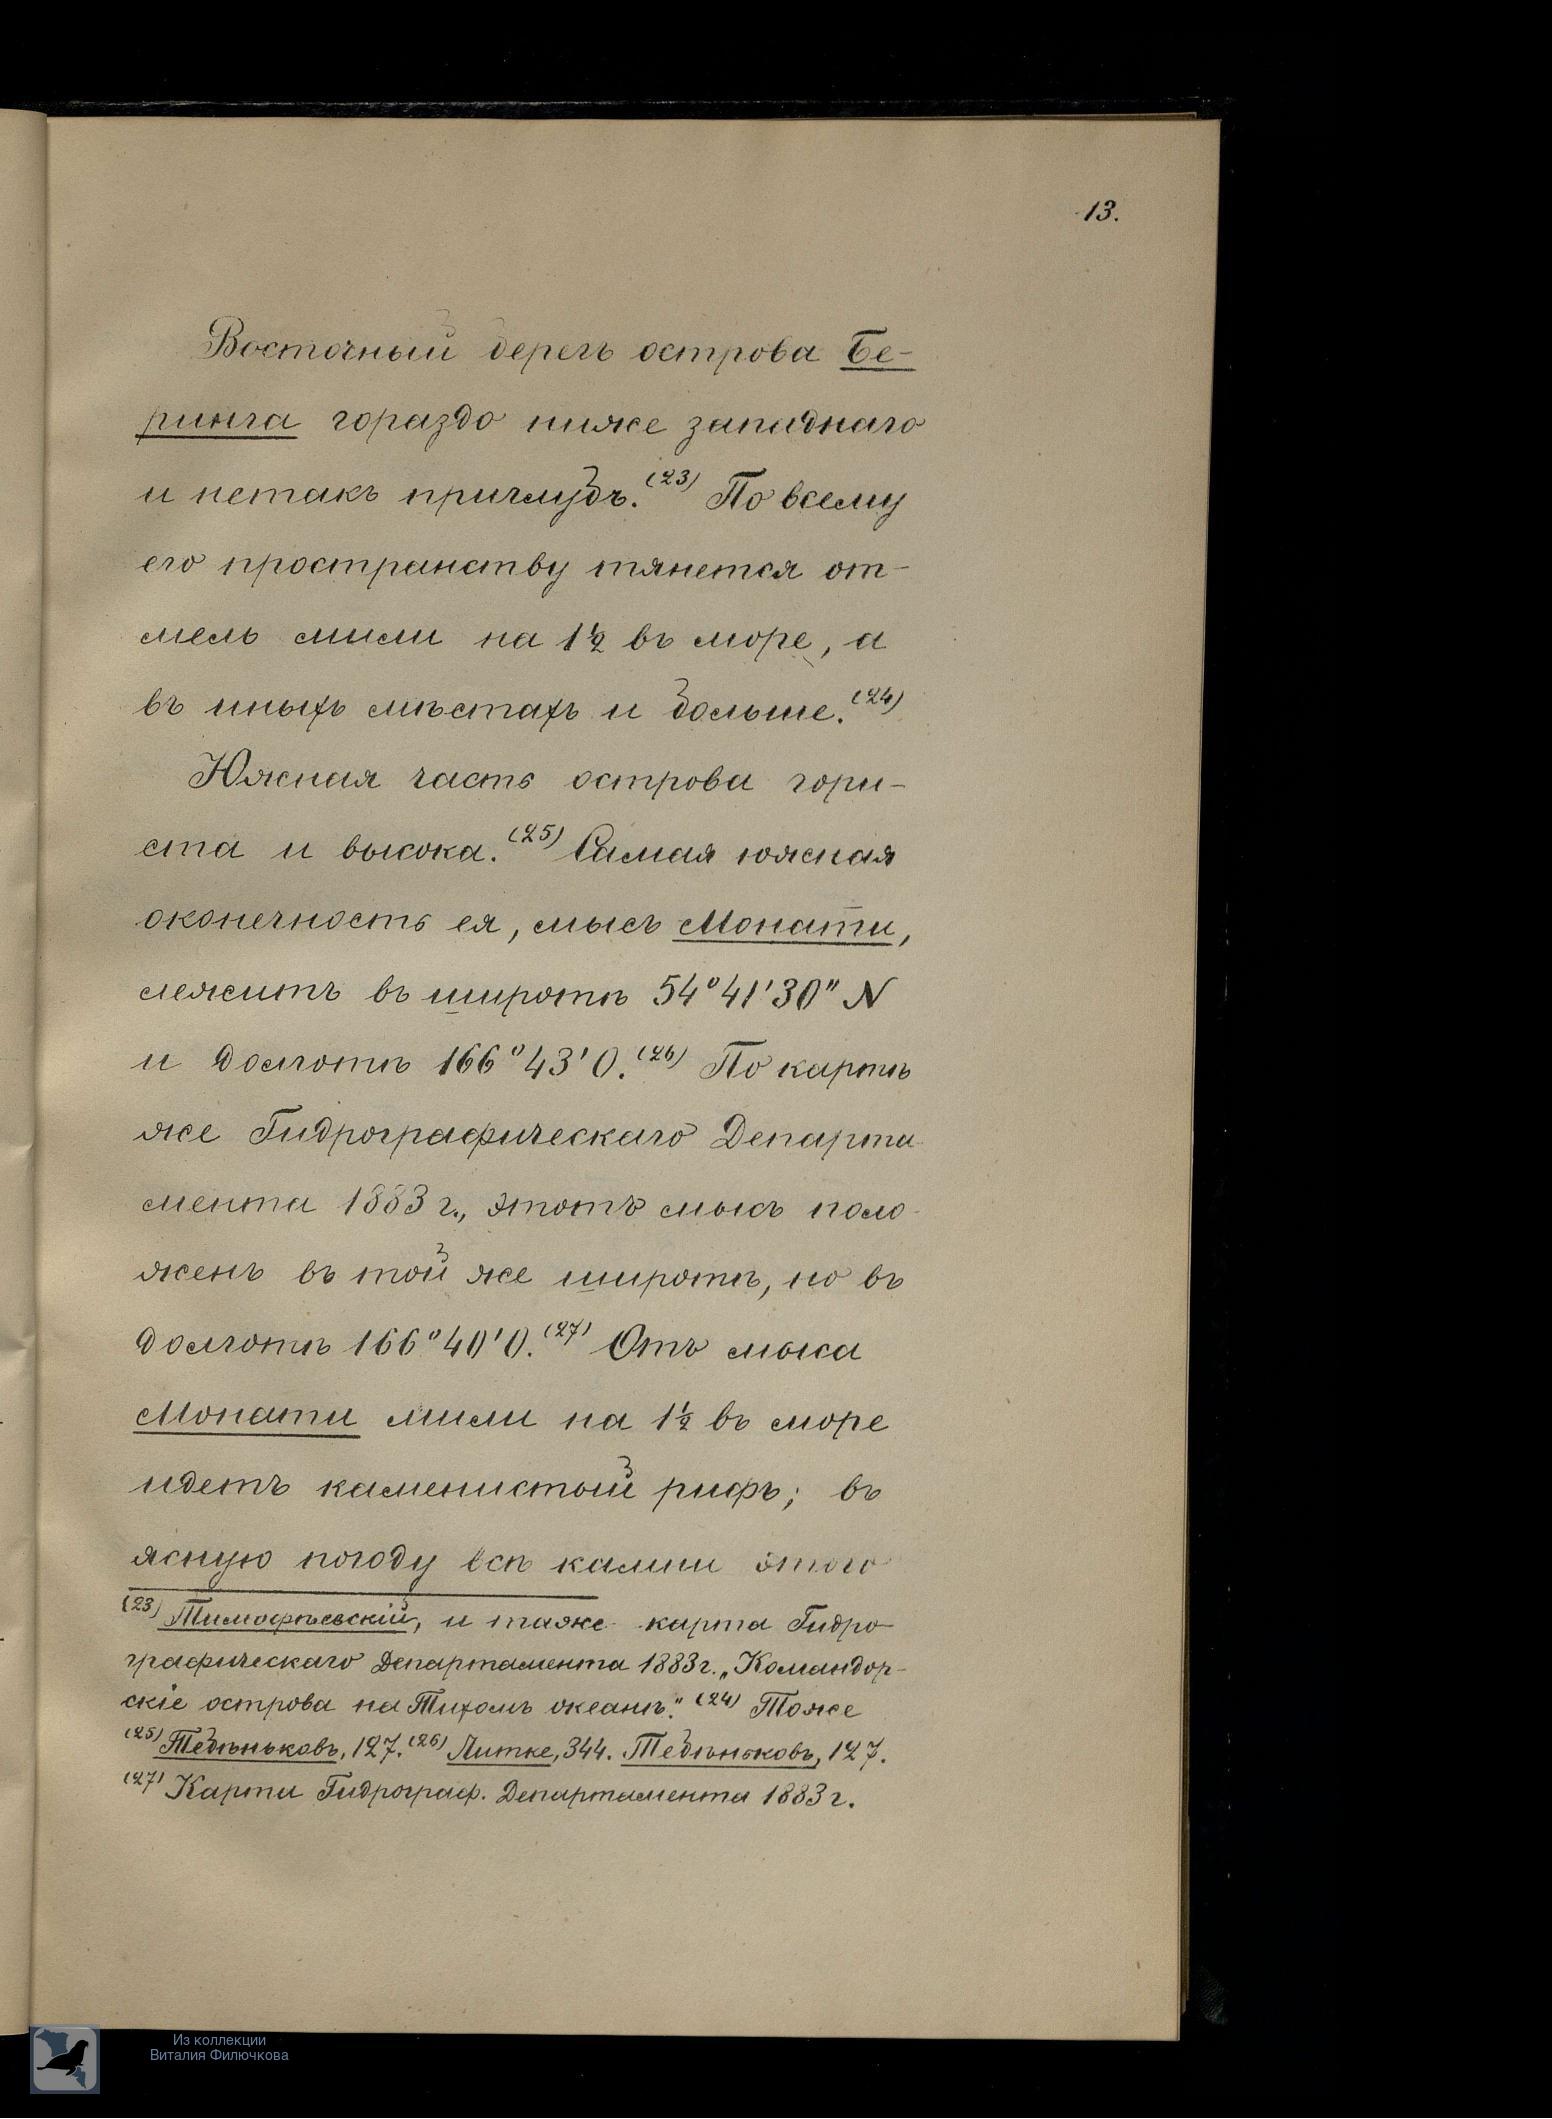 13.
Восточный берегъ острова Бе-
ринга гораздо ниже западнаго
и нетакъ приглубъ.(23) По всему
его пространству тянется от-
мель мили на 1½ въ море, а
въ иныхъ мѣстахъ и больше.(24)
Южная часть острова гори-
ста и высока.(25) Самая южная
оконечность ея, мысъ Монати,
лежитъ въ широтѣ 54°41'30" N
и долготѣ 166°43'0.(26) По картѣ
же Гидрографическаго Департа
мента 1883 г., этотъ мысъ поло-
женъ въ той же широтѣ, но въ
долготѣ 166°40'0.(27) Отъ мыса
Монати мили на 1½ въ море
идетъ каменистый рифъ; въ
ясную погоду всѣ камни этого
(23) Тимофѣевскій, и также карта Гидро-
графическаго Департамента 1883 г. „Командор-
скіе острова на Тихомъ океанѣ." (24) Тоже
(25) Тебѣньковъ, 127. (26) Литке, 344. Тебѣньковъ, 127.
(27) Карта Гидрограф. Департамента 1883 г.
Из коллекции
Виталия Филючкова